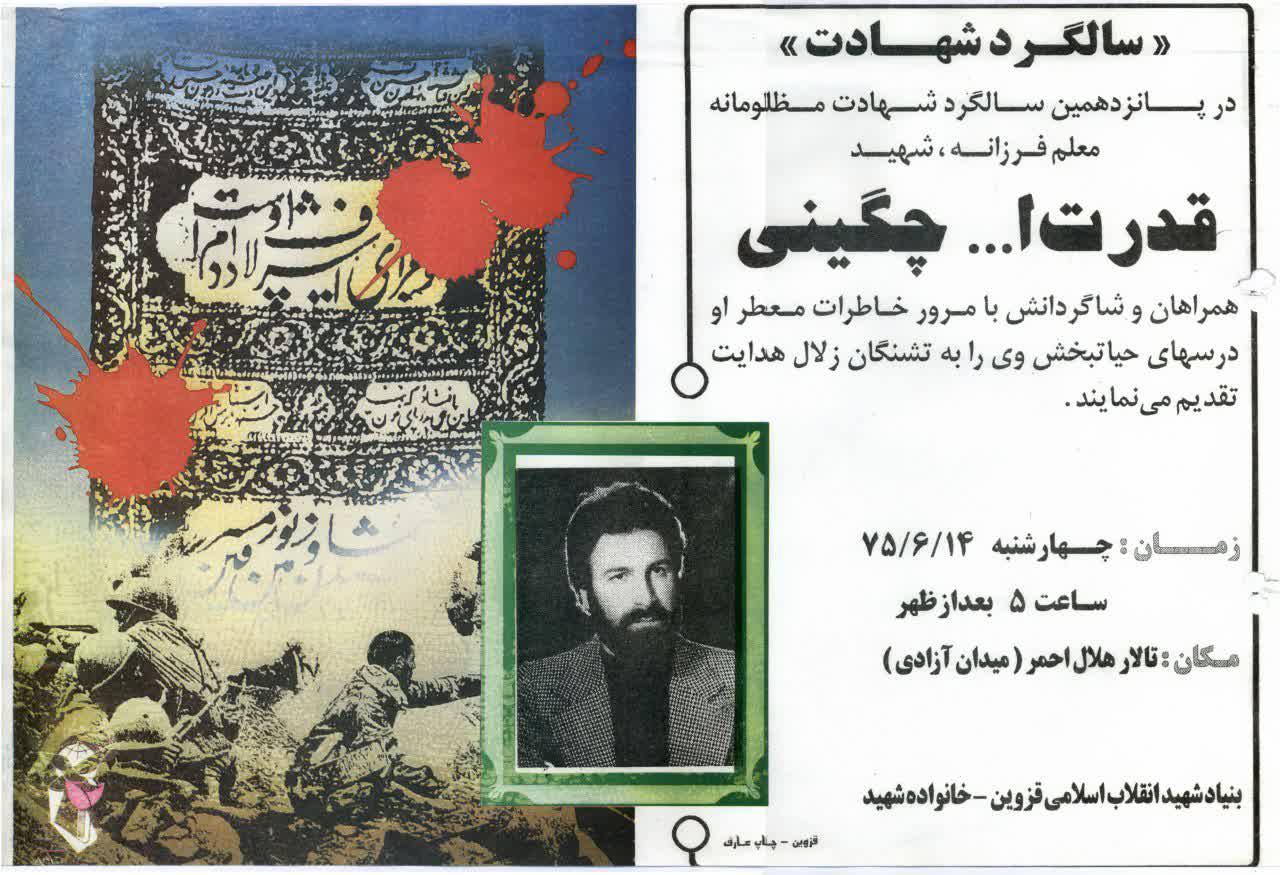 « سالگرد شهادت »
در پانزدهمین سالگرد شهادت مظلومانه
معلم فرزانه، شهید
قدرت ا... چگینی
همراهان و شاگردانش با مرور خاطرات معطر او
درسهای حیاتبخش وی را به تشنگان زلال هدایت
تقدیم می‌نمایند.
زمان: چهارشنبه ۷۵/۶/۱۴
ساعت ۵ بعدازظهر
مکان: تالار هلال احمر (میدان آزادی)
بنیاد شهید انقلاب اسلامی قزوین - خانواده شهید
قزوین - چاپ عارف